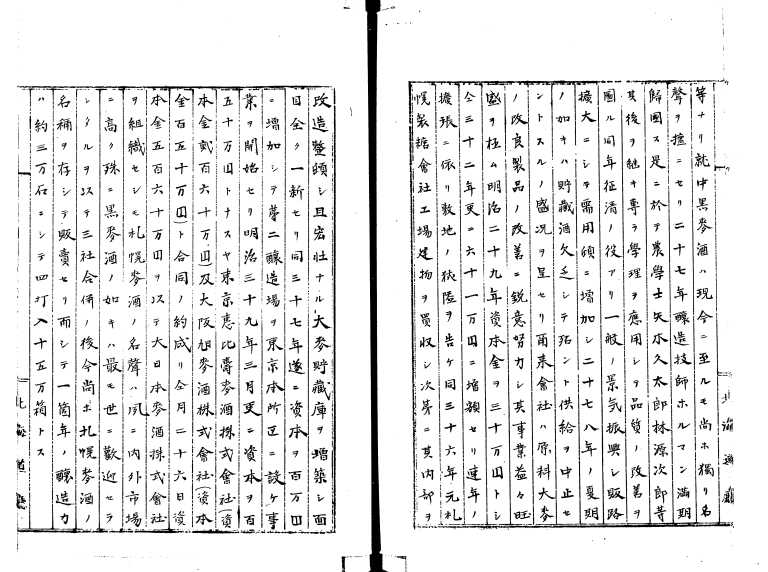 等ナリ就中黒麥酒ハ現今ニ至ルモ尚ホ獨リ名
聲ヲ擅ニセリ二十七年釀造技師ホルマン満期
歸國ス是ニ於テ農學士矢木久太郎林源次郎等
其後ヲ継キ專ラ學理ヲ應用シテ品質ノ改善ヲ
圖ル同年征清ノ役アリ一般ノ景気振興シ販路
擴大ニシテ需用頓ニ増加シ二十七八年ノ夏期
ノ如キハ貯藏酒欠乏シテ殆ント供給ヲ中止セ
ントスルノ盛況ヲ呈セリ爾来會社ハ原料大麥
ノ改良製品ノ改善ニ鋭意努力シ其事業益々旺
盛ヲ極ム明治二十九年資本金ヲ三十万円トシ
仝三十二年更ニ六十一万円ニ増額セリ連年ノ
擴張ニ依リ敷地ノ狹隘ヲ告ケ同三十六年元札
幌製糖會社工場建物ヲ買収シ次第ニ其内部ヲ
北海道廳
改造整頓シ且宏壮ナル大麥貯藏庫ヲ増築シ面
目全ク一新セリ同三十七年遂ニ資本ヲ百万円
ニ増加シテ第二釀造場ヲ東京本所区ニ設ケ事
業ヲ開始セリ明治三十九年三月更ニ資本ヲ百
五十万円トナスヤ東京恵比壽麥酒株式會社(資
本金貳百六十万円)及大阪旭麥酒株式會社(資本
金百五十万円)ト合同ノ約成リ仝月二十六日資
本金五百六十万円ヲ以テ大日本麥酒株式會社
ヲ組織セシモ札幌麥酒ノ名聲ハ夙ニ内外市場
ニ高ク殊ニ黒麥酒ノ如キハ最モ世ニ歡迎セラ
レタルヲ以テ三社合併ノ後今尚ホ札幌麥酒ノ
名稱ヲ存シテ販賣セリ而シテ一箇年ノ釀造力
ハ約三万石ニシテ四打入十五万箱トス
北海道廳